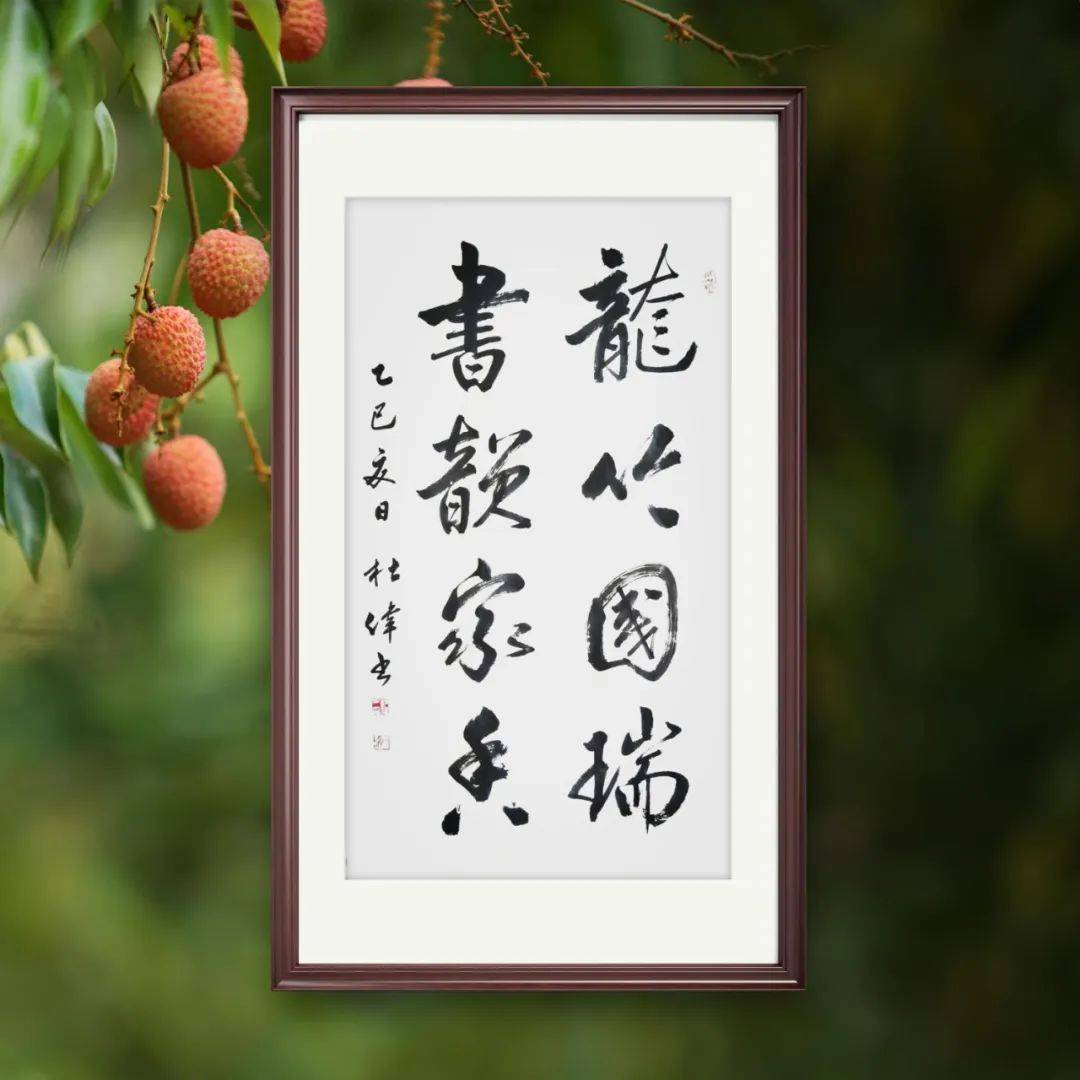 龍竹國瑞
書韻家香
乙巳夏日 杜偉书